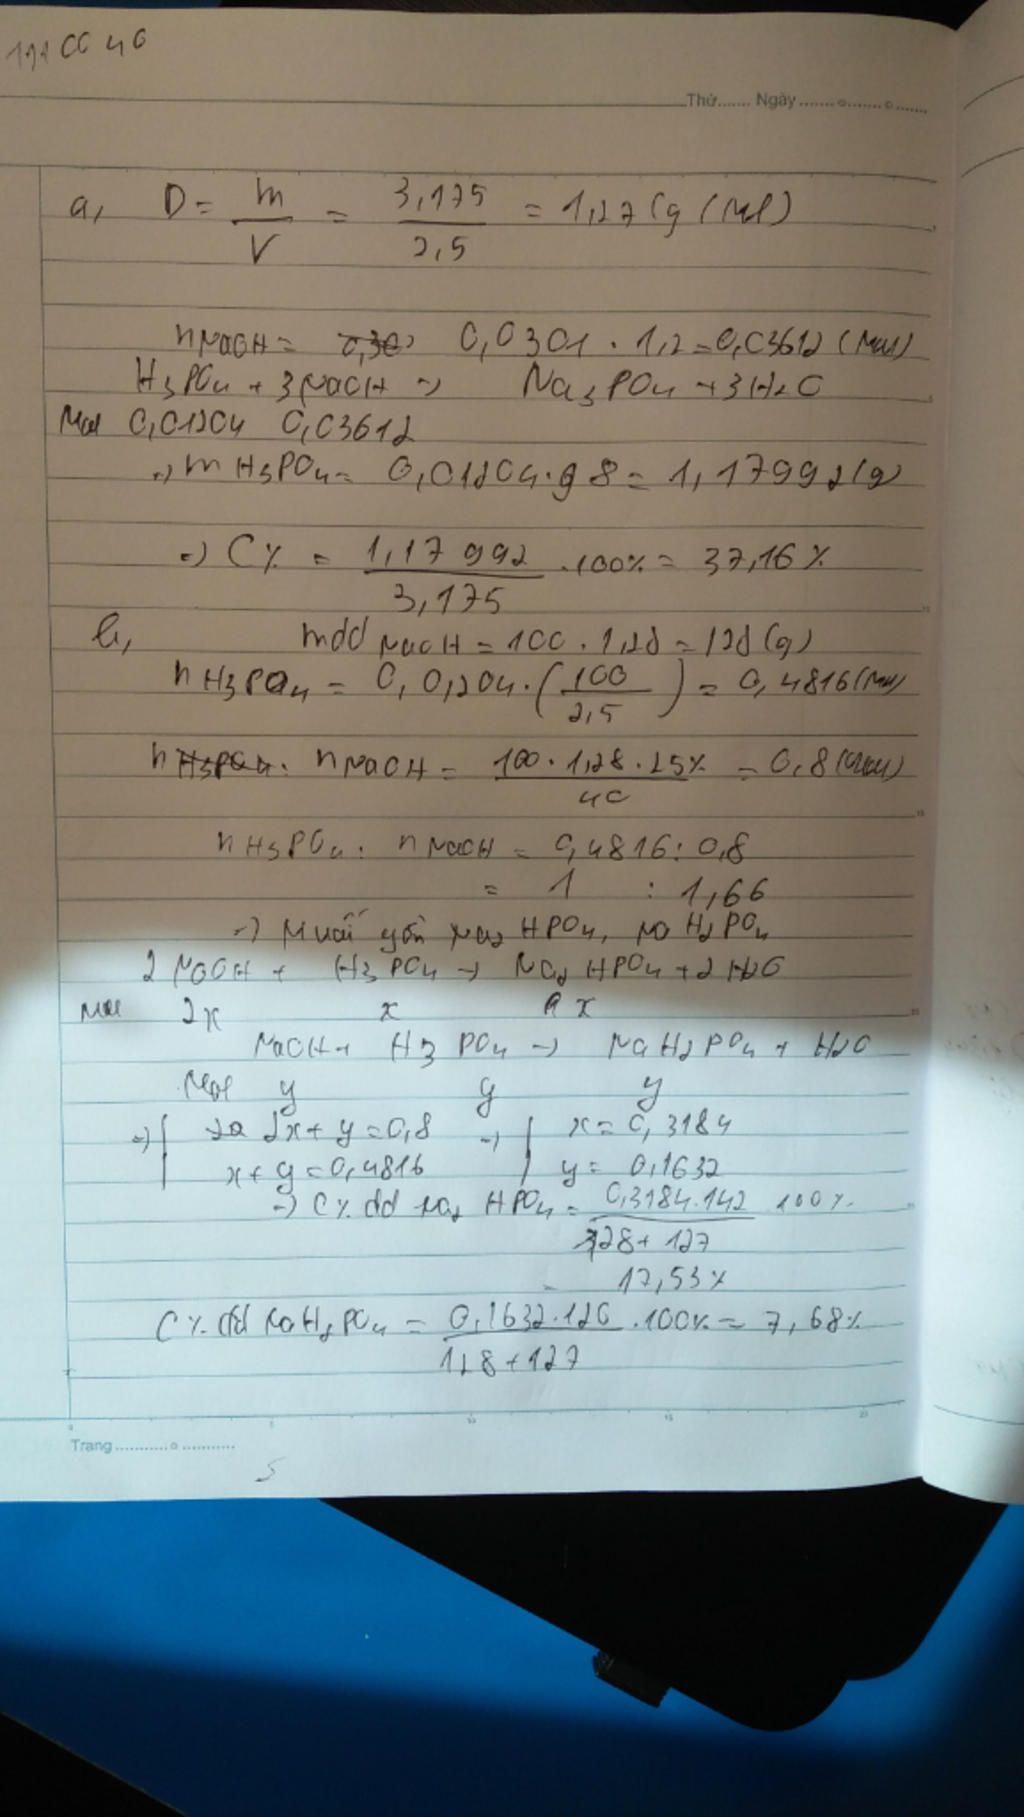 Thứ....... Ngày
a, D = m/V = 3,175/2,5 = 1,27 (g/ml)
nNaOH = 0,0301 . 1,2 = 0,03612 (mol)
H3PO4 + 3NaOH → Na3PO4 + 3H2O
Mol 0,01204 0,03612
→ mH3PO4 = 0,01204 . 98 = 1,17992 (g)
→ C% = 1,17992/3,175 . 100% = 37,16%
b, mdd NaOH = 100 . 1,28 = 128 (g)
nH3PO4 = 0,01204 . (100/2,5) = 0,4816 (mol)
nNaOH = 100 . 1,28 . 25%/40 = 0,8 (mol)
nH3PO4 : nNaOH = 0,4816 : 0,8
= 1 : 1,66
→ Muối gồm Na2HPO4, NaH2PO4
2NaOH + H3PO4 → Na2HPO4 + 2H2O
mol 2x x x
NaOH + H3PO4 → NaH2PO4 + H2O
Mol y y y
→ 2x + y = 0,8 → x = 0,3184
x + y = 0,4816 y = 0,1632
→ C% dd Na2HPO4 = 0,3184.142/128 + 127 100%
= 17,53%
C% dd NaH2PO4 = 0,1632.120/128 + 127 . 100% = 7,68%
Trang